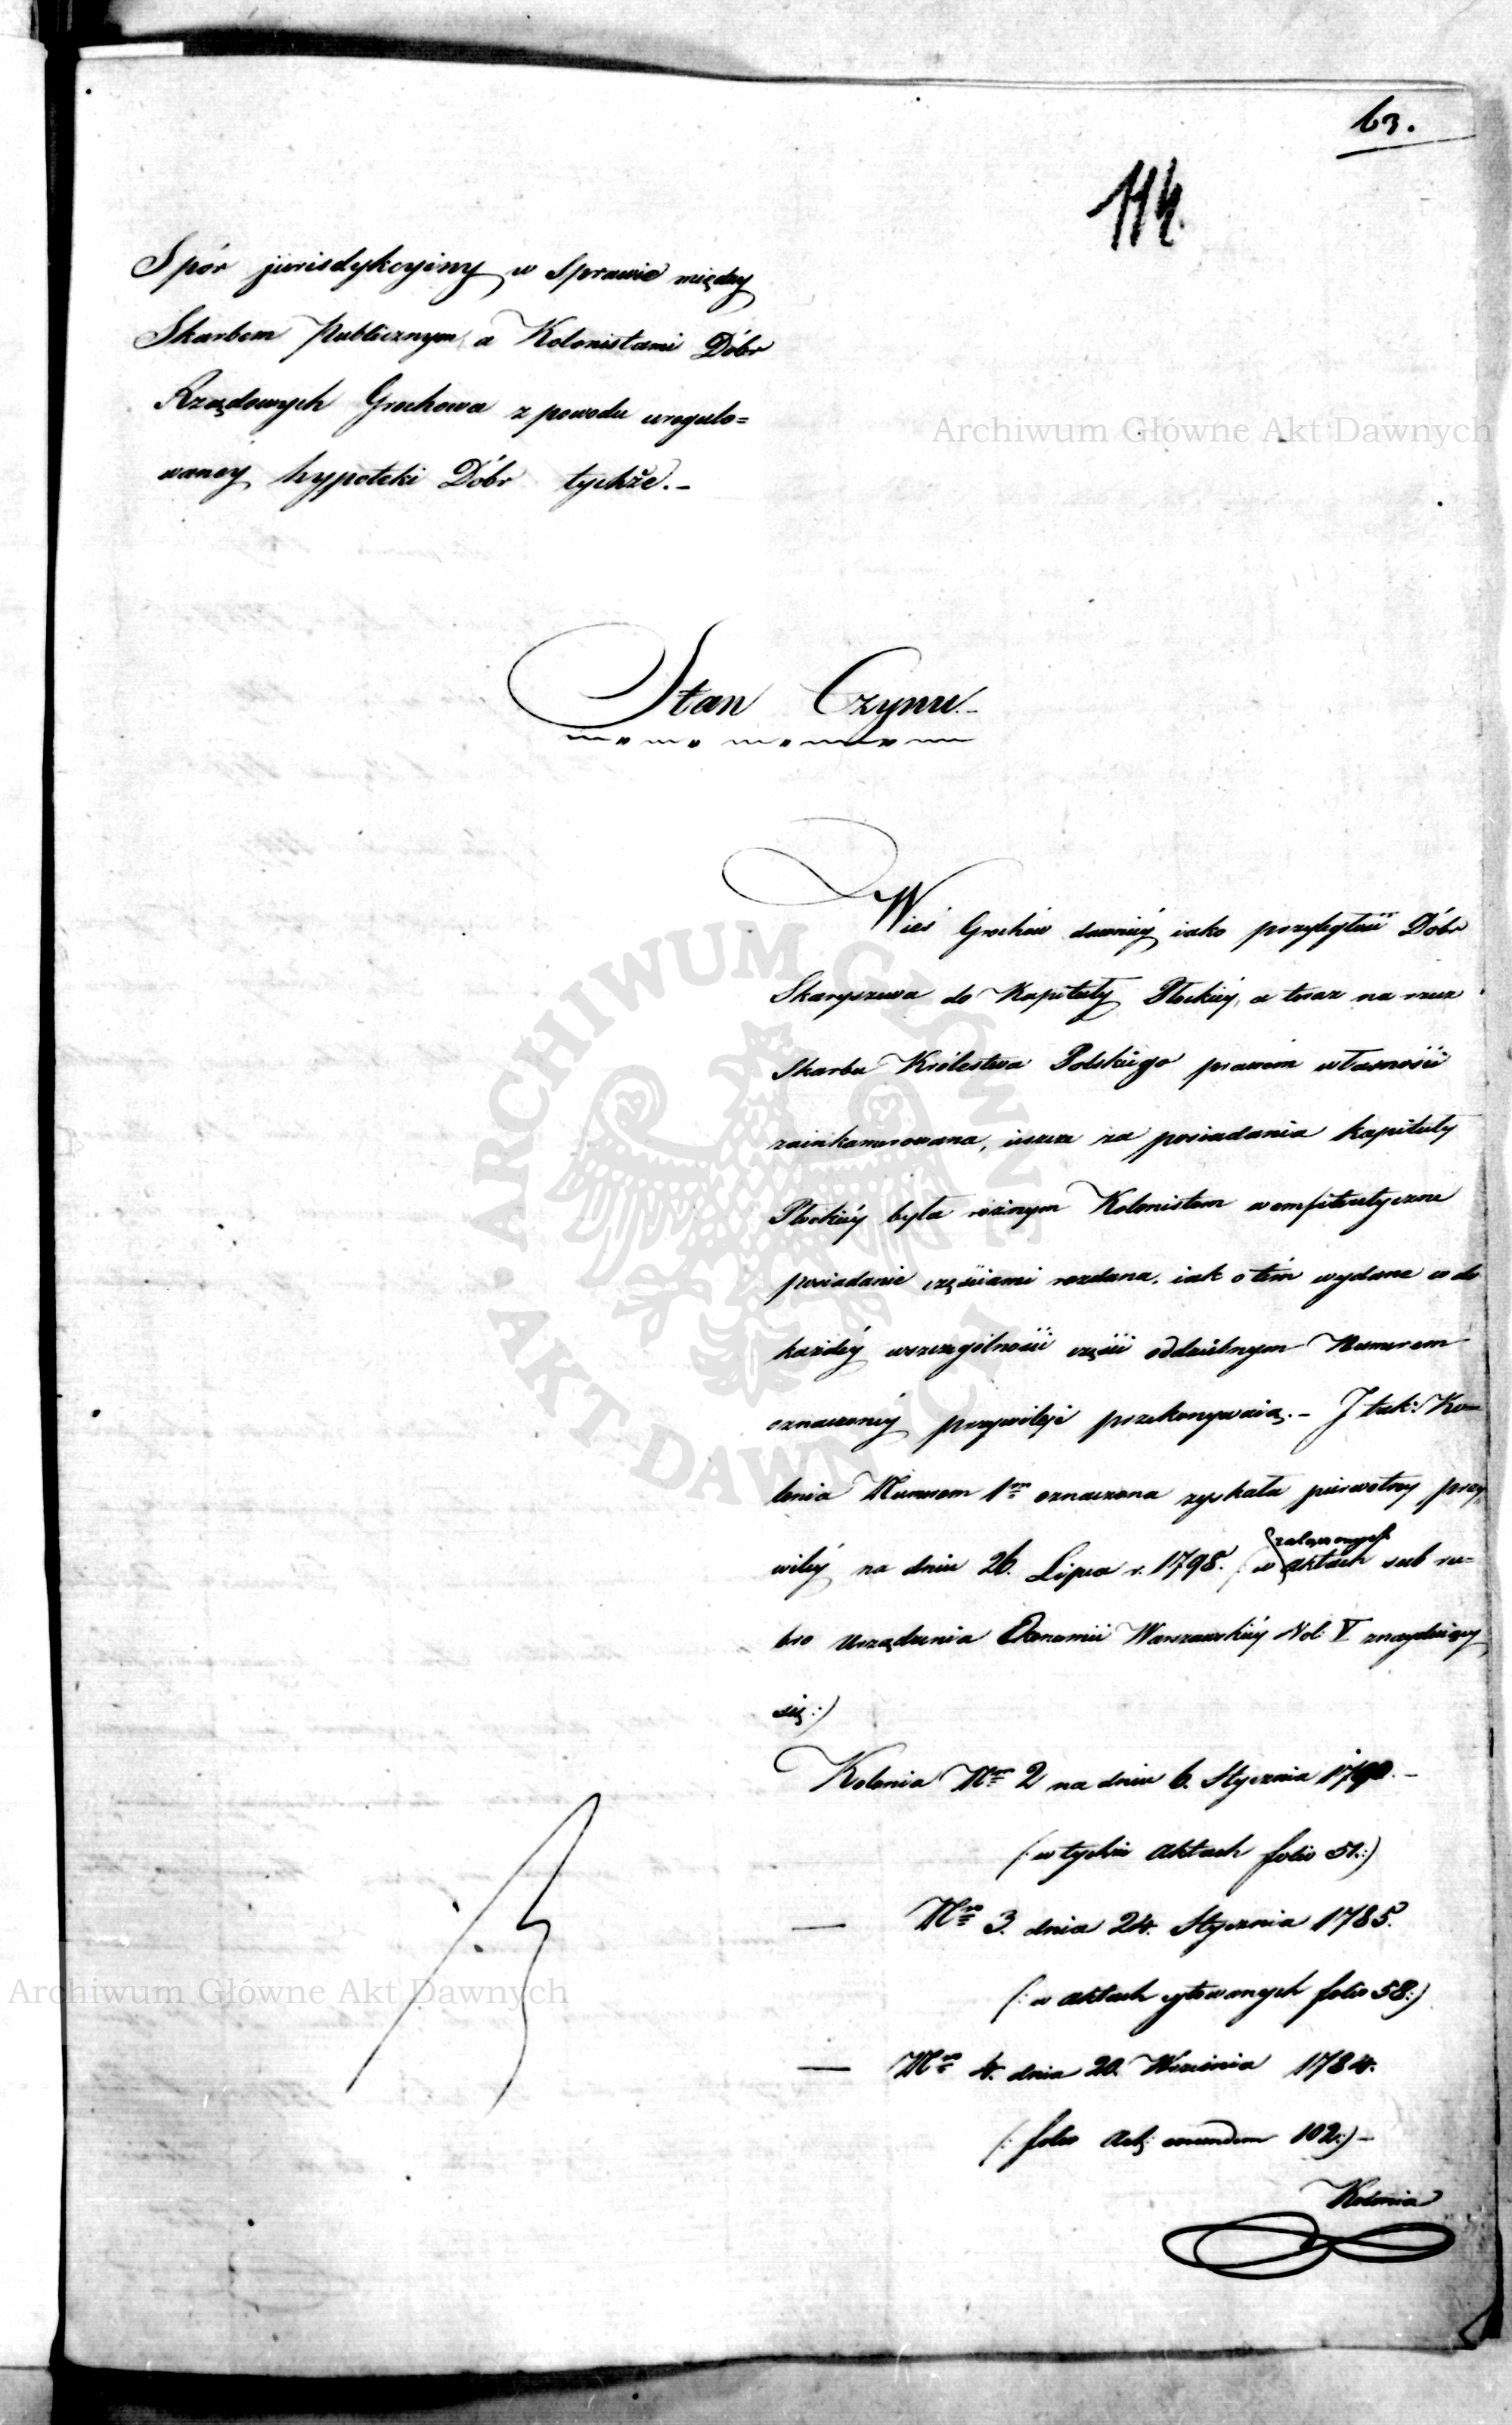 63.
114.
Spór jurisdykcyiny w Sprawie między
Skarbem Publicznym a Kolonistami Dóbr
Rządowych Grochowa z powodu uregulo=
waney hypoteki Dóbr tychże.-
Stan Czynu.-
Wieś Grochów dawniéy iako przyległość Dóbr
Skaryszewa do Kapituły Płockiéy, a teraz na rzecz
Skarbu Królestwa Polskiego prawem własności
zainkamerowana, ieszcze za posiadania Kapituły
Płockiéy była różnym Kolonistom w emfiteutyczne
posiadanie częściami rozdana, iak o tém wydane co do
każdéy wszczególności części oddzielnym Numerem
oznaczonéy przywileje przekonywaią.- I tak: Ko=
lonia Numerem 1m oznaczona zyskała pierwotny przy=
wiléy na dniu 26. Lipca r. 1798. (: w załączonych aktach sub ru=
bro Urządzenia Ekonomii Warszawskiéy Vol: V znayduiący
się :)
Kolonia Nro 2 na dniu 6. Stycznia 1790.-
(: w tychże Aktach folio 51.:)
— Nro 3. dnia 24. Stycznia 1785.
(: w aktach cytowanych folio 58:)
— Nro 4. dnia 20. Września 1784.
(: folio Act: eorundem 102:)-
Kolonia
Archiwum Główne Akt Dawnych
Archiwum Główne Akt Dawnych
ARCHIWUM GŁÓWNE AKT DAWNYCH